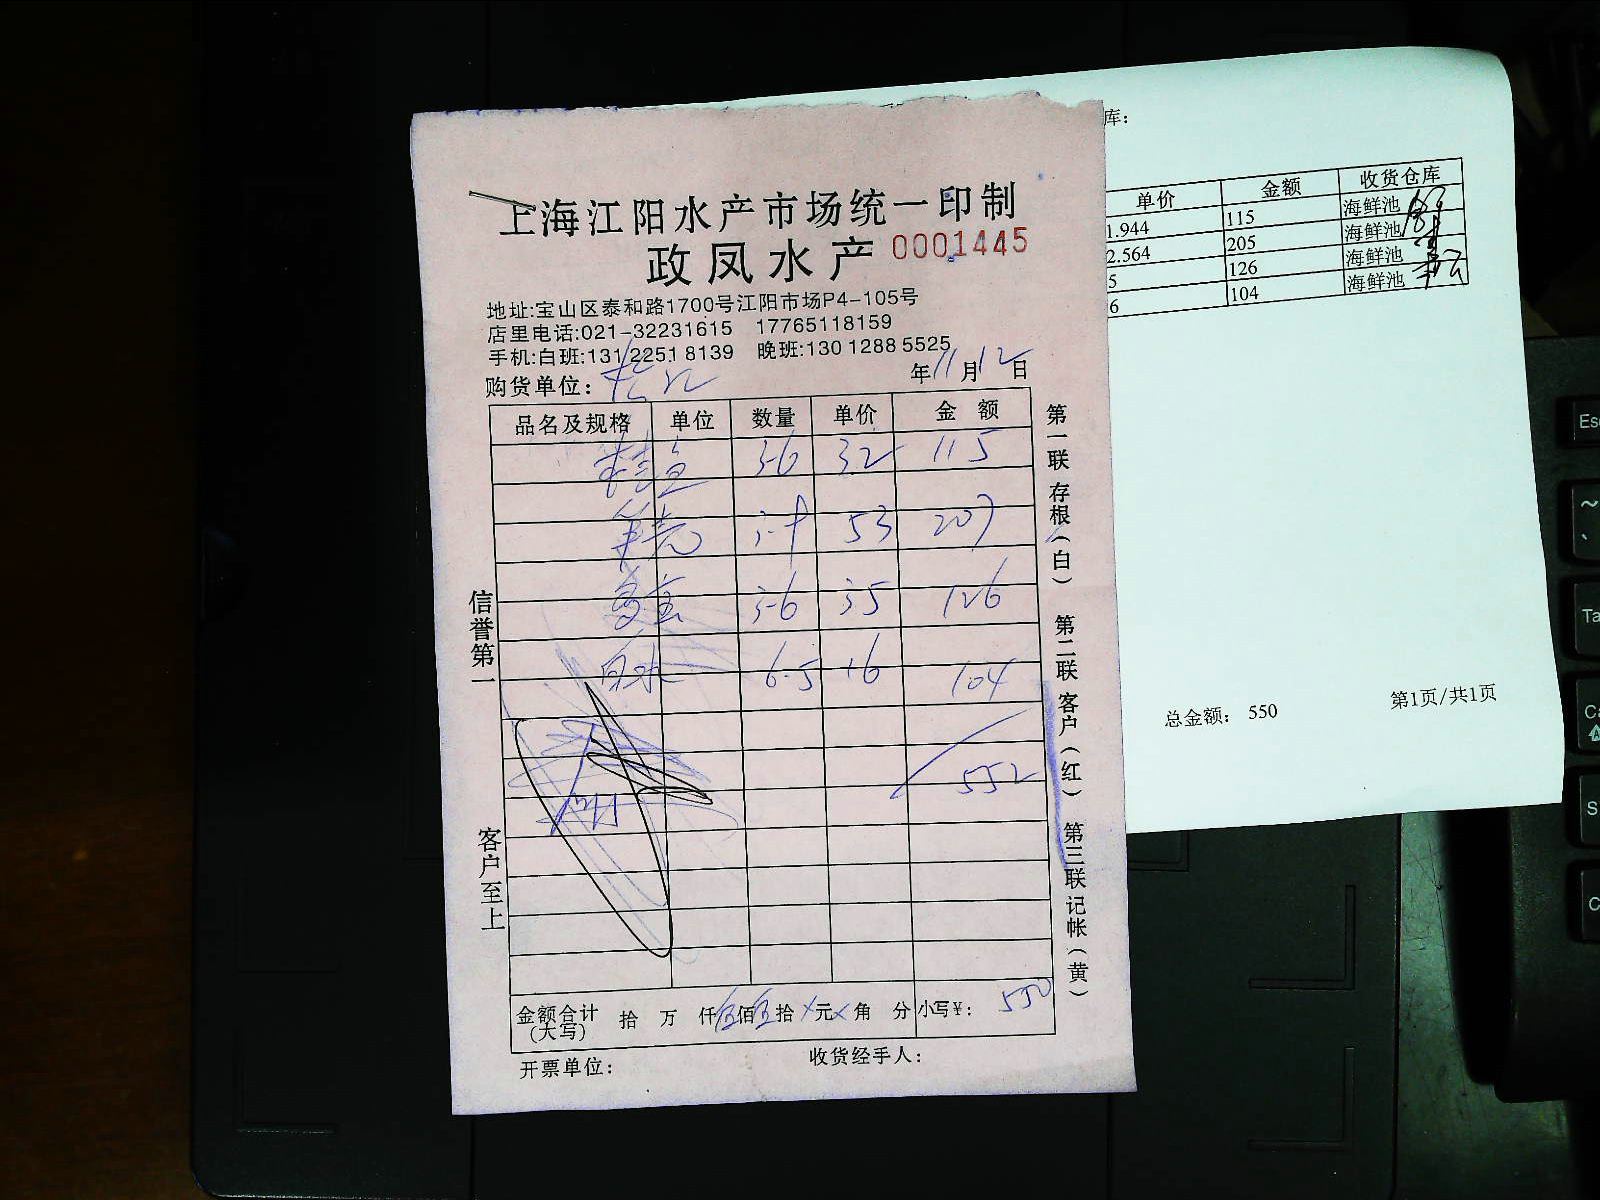 上海江阳水产市场统一印制
政凤水产 0001445
地址:宝山区泰和路1700号江阳市场P4-105号
店里电话:021-32231615 17765118159
手机:白班:131 2251 8139 晚班:130 1288 5525
购货单位:
年11月12日
品名及规格 单位 数量 单价 金额
桂鱼 3-6 32 115
53 207
多宝 3-6 35 126
白水 6.5 16 104
552
金额合计(大写) 拾 万 仟伍佰伍拾×元×角 分 小写¥: 550
开票单位: 收货经手人:
信誉第一
客户至上
第一联存根(白) 第二联客户(红) 第三联记帐(黄)
库:
单价 金额 收货仓库
1.944 115 海鲜池
2.564 205 海鲜池
5 126 海鲜池
6 104 海鲜池
总金额: 550
第1页/共1页
Esc
~
S